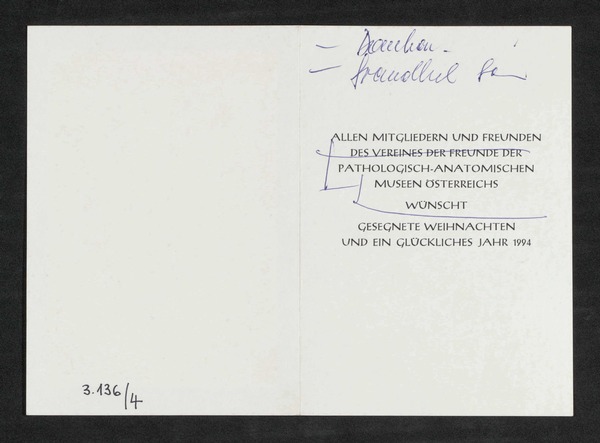 ALLEN MITGLIEDERN UND FREUNDEN
DES VEREINES DER FREUNDE DER
PATHOLOGISCH-ANATOMISCHEN
MUSEEN ÖSTERREICHS
WÜNSCHT
GESEGNETE WEIHNACHTEN
UND EIN GLÜCKLICHES JAHR 1994
3.136/4